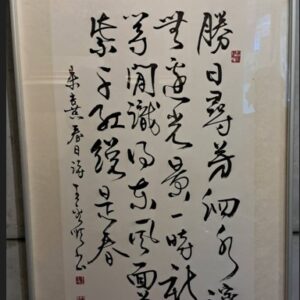 勝日尋芳泗水濱
無邊光景一時新
等閒識得東風面
紫千紅總是春
朱熹春日詩